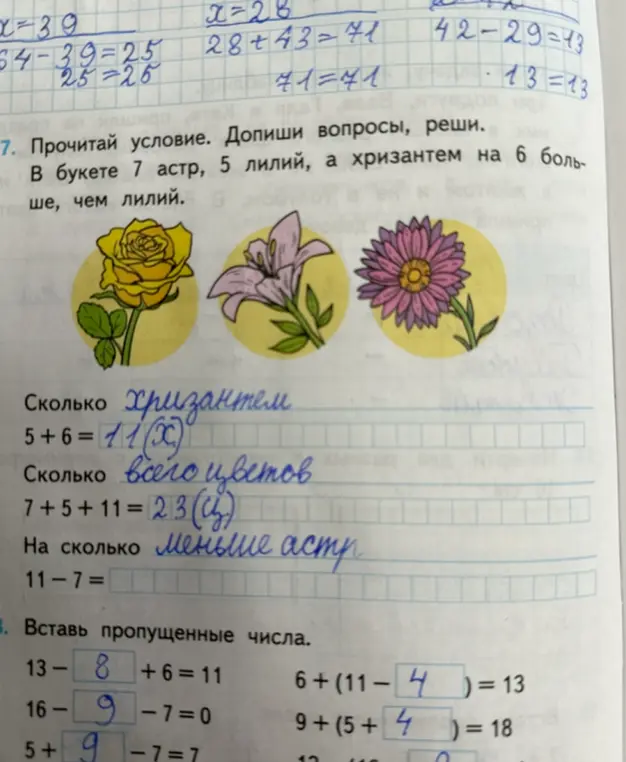 x=39
x=28
64-39=25
28+43=71
42-29=13
25=25
71=71
13=13
7. Прочитай условие. Допиши вопросы, реши.
В букете 7 астр, 5 лилий, а хризантем на 6 боль-
ше, чем лилий.
Сколько хризантем
5 + 6 = 11(х)
Сколько всего цветов
7 + 5 + 11 = 23(ц)
На сколько меньше астр
11 – 7 =
8. Вставь пропущенные числа.
13 – 8 + 6 = 11
6 + (11 – 4) = 13
16 – 9 – 7 = 0
9 + (5 + 4) = 18
5 + 9 – 7 = 7